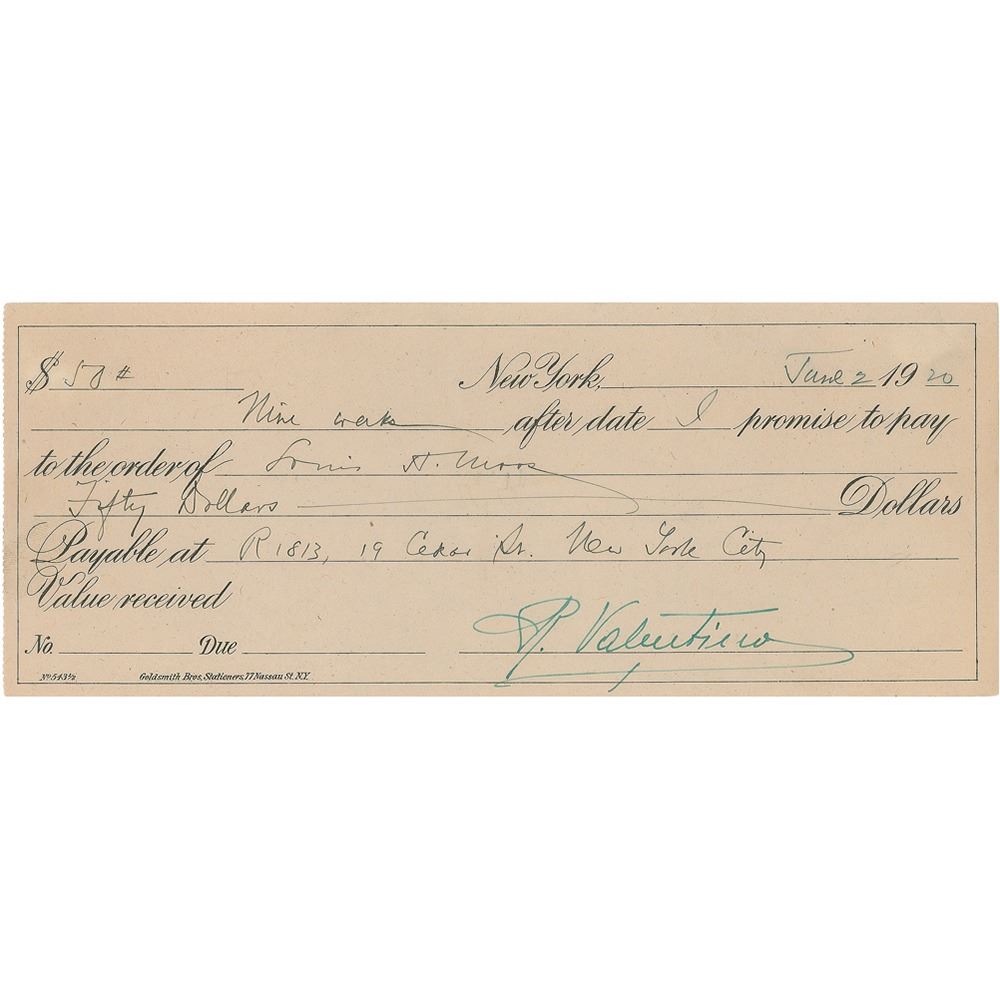 $ 50 # New York, June 2 1920
Nine weeks after date I promise to pay
to the order of Louis H. Moos
Fifty Dollars Dollars
Payable at R 1813, 19 Cedar St. New York City
Value received
No. Due R. Valentino
No. 543½ Goldsmith Bros, Stationers, 77 Nassau St. N.Y.